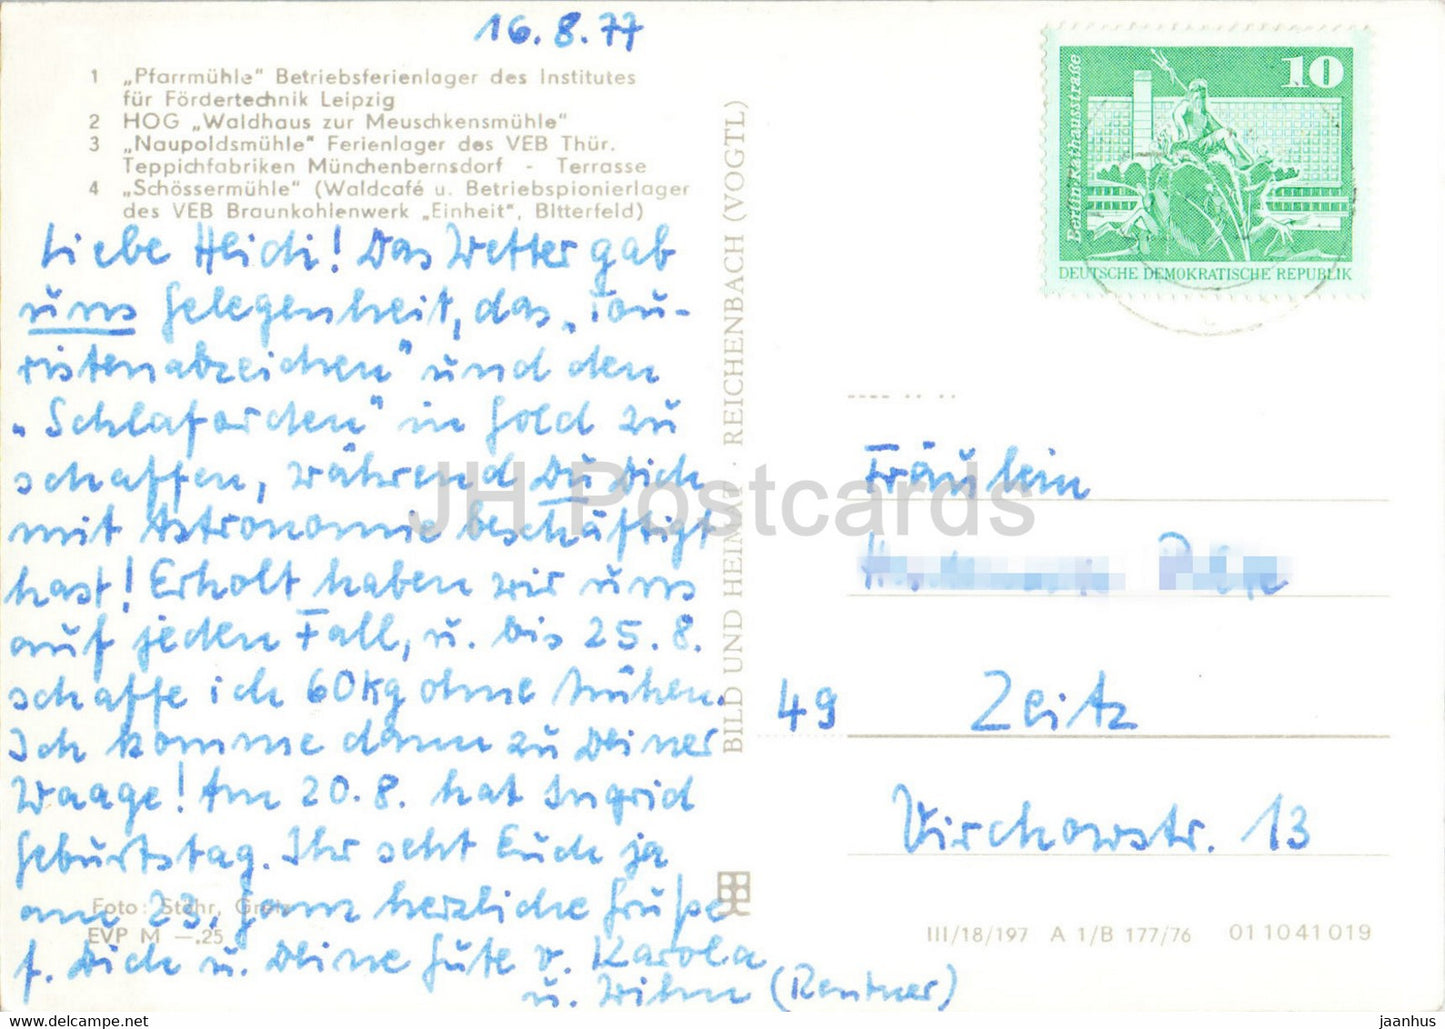 16.8.77
1 „Pfarrmühle“ Betriebsferienlager des Institutes
für Fördertechnik Leipzig
2 HOG „Waldhaus zur Meuschkensmühle“
3 „Naupoldsmühle“ Ferienlager des VEB Thür.
Teppichfabriken Münchenbernsdorf - Terrasse
4 „Schössermühle“ (Waldcafé u. Betriebspionierlager
des VEB Braunkohlenwerk „Einheit“, Bitterfeld)
Liebe Heidi! Das Wetter gab
uns Gelegenheit, das „Tou-
ristenabzeichen“ und den
„Schlaforden“ in Gold zu
schaffen, während Du Dich
mit Astronomie beschäftigt
hast! Erholt haben wir uns
auf jeden Fall, u. bis 25.8.
schaffe ich 60kg ohne Mühen.
Ich komme dann zu Deiner
Waage! Am 20.8. hat Ingrid
Geburtstag. Ihr seht Euch ja
am 23. Ganz herzliche Grüße
f. Dich u. Deine Güte v. Karola
u. Wilm (Rentner)
Foto: Stöhr, Greiz
EVP M —.25
BILD UND HEIMAT · REICHENBACH (VOGTL)
10
Berlin, Rathausstraße
DEUTSCHE DEMOKRATISCHE REPUBLIK
Fräulein
49 Zeitz
Virchowstr. 13
III/18/197 A 1/B 177/76 01 10 41 019
JH Postcards
jaanhus — https://jhpostcards.com